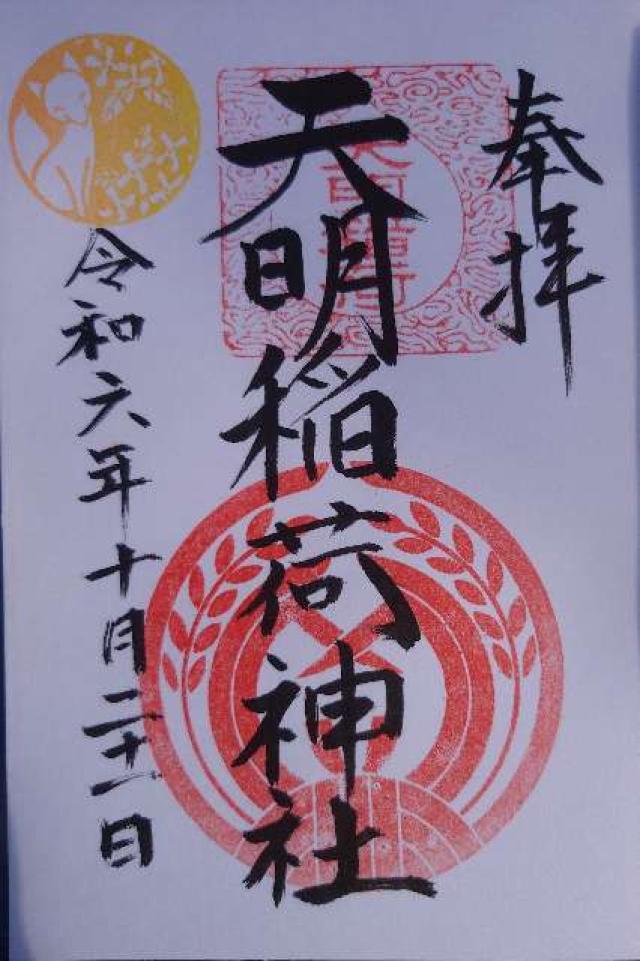 奉拝
天明稲荷神社
令和六年十月二十一日